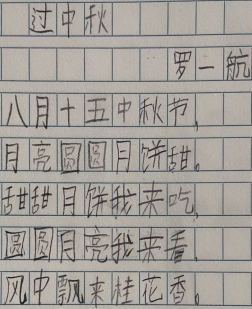 过中秋
罗一航
八月十五中秋节,
月亮圆圆月饼甜。
甜甜月饼我来吃,
圆圆月亮我来看,
风中飘来桂花香。